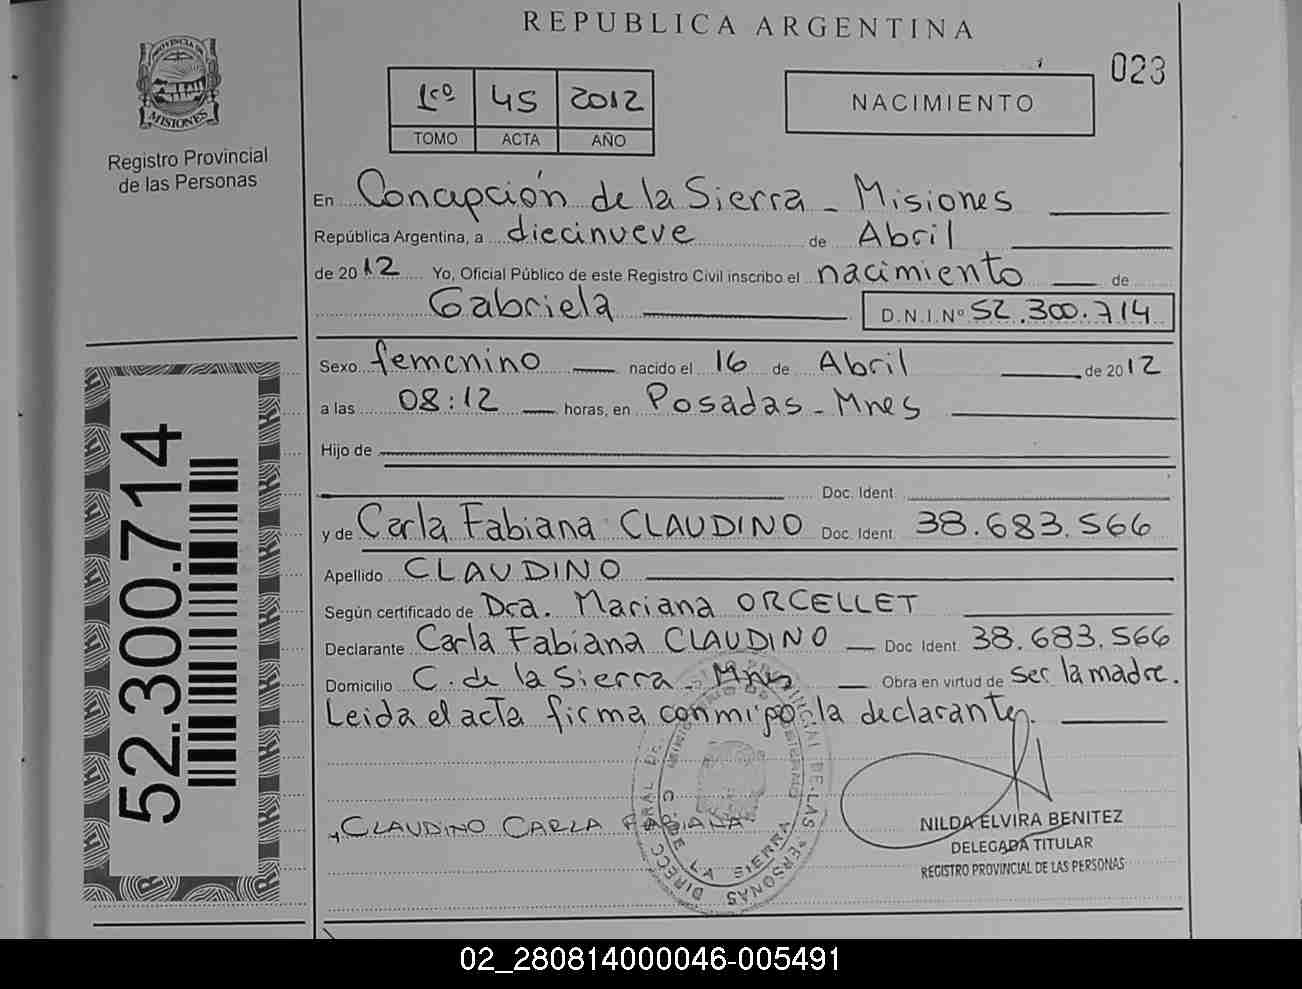 REPUBLICA ARGENTINA
023
PROVINCIA DE
MISIONES
Registro Provincial
de las Personas
1ro 45 2012
TOMO ACTA AÑO
NACIMIENTO
En Concepción de la Sierra - Misiones
República Argentina, a diecinueve de Abril
de 2012 Yo, Oficial Público de este Registro Civil inscribo el nacimiento de
Gabriela D.N.I.Nº 52.300.714
Sexo femenino nacido el 16 de Abril de 2012
a las 08:12 horas, en Posadas - Mnes
Hijo de
Doc. Ident.
y de Carla Fabiana CLAUDINO Doc. Ident. 38.683.566
Apellido CLAUDINO
Según certificado de Dra. Mariana ORCELLET
Declarante Carla Fabiana CLAUDINO Doc Ident 38.683.566
Domicilio C. de la Sierra - Mnes Obra en virtud de ser la madre.
Leida el acta firma conmipo la declarante.
CLAUDINO CARLA FABIANA
NILDA ELVIRA BENITEZ
DELEGADA TITULAR
REGISTRO PROVINCIAL DE LAS PERSONAS
DE LAS PERSONAS
C. DE LA SIERRA
52.300.714
02_280814000046-005491